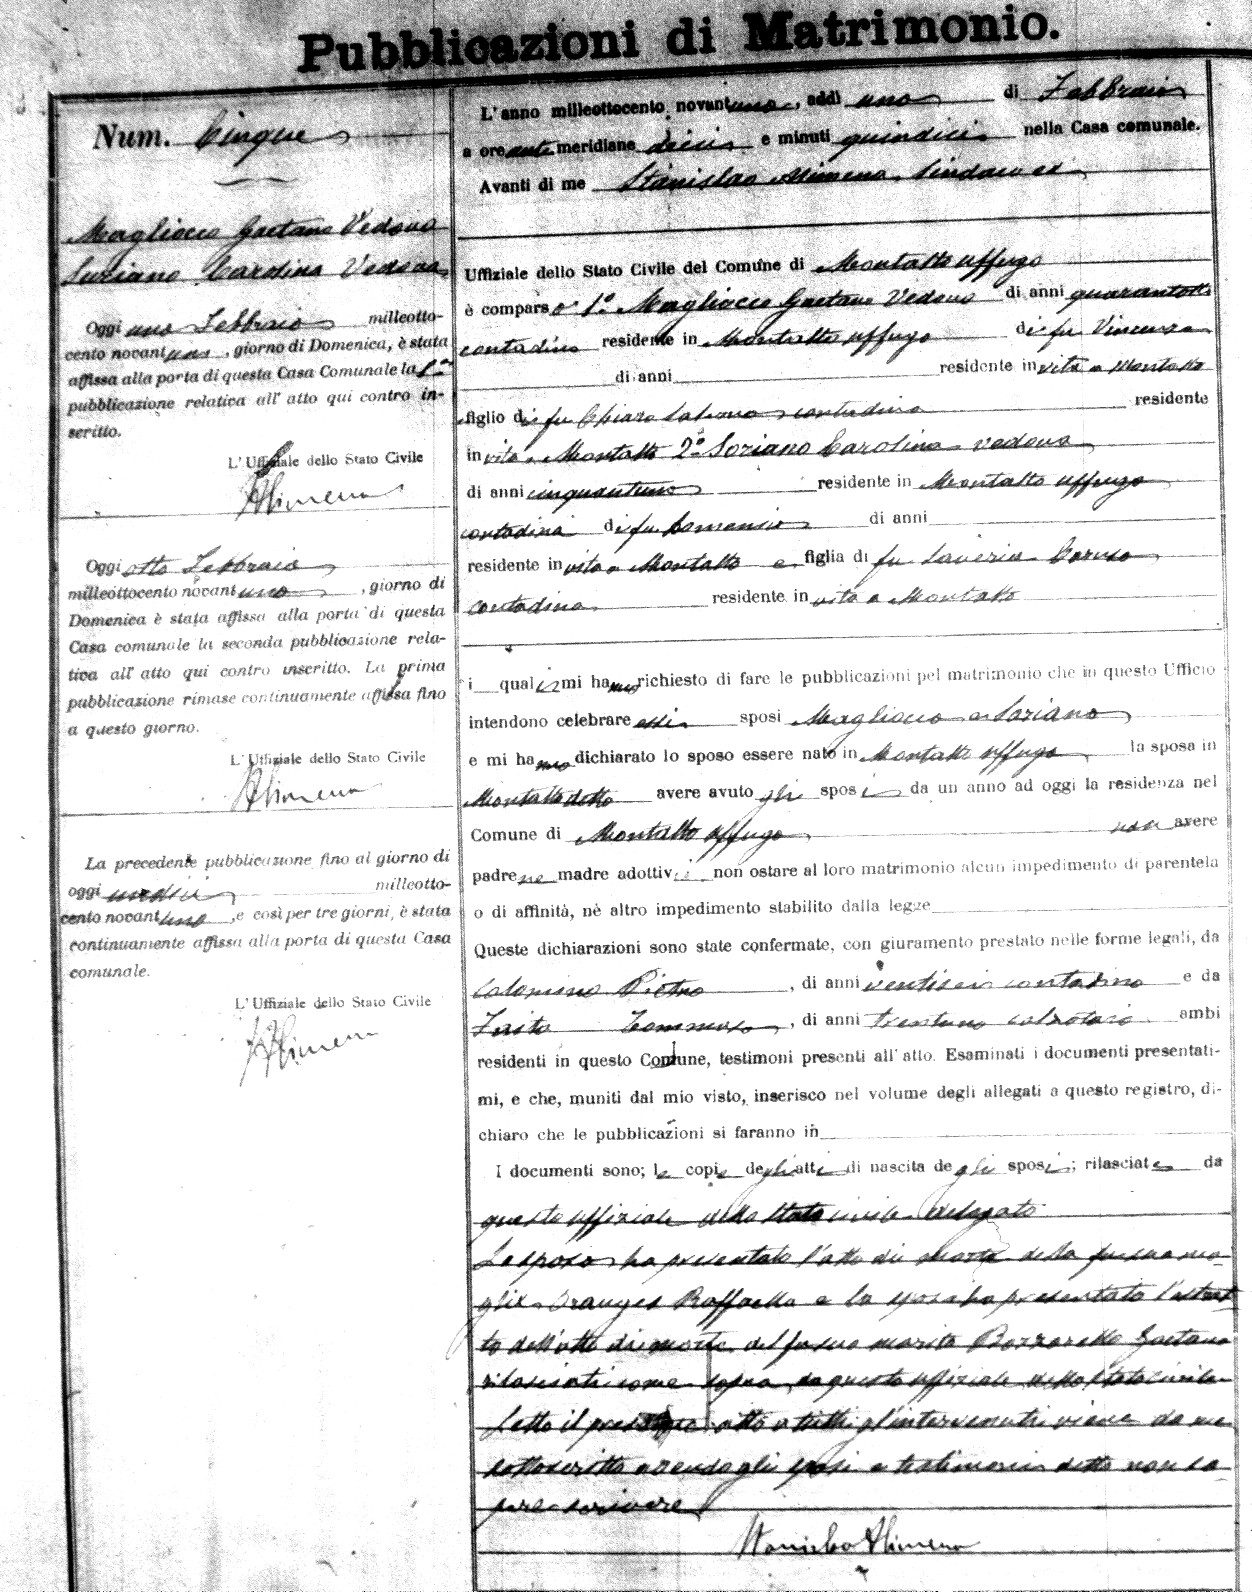 Pubblicazioni di Matrimonio.
Num. Cinque
Magliocco Gaetano Vedovo
Soriano Carolina Vedova
Oggi uno Febbraio milleotto-
cento novantuno, giorno di Domenica, è stata
affissa alla porta di questa Casa Comunale la 1.a
pubblicazione relativa all' atto qui contro in-
scritto.
L' Uffiziale dello Stato Civile
SAlimena
Oggi otto Febbraio
milleottocento novantuno, giorno di
Domenica è stata affissa alla porta di questa
Casa comunale la seconda pubblicazione rela-
tiva all' atto qui contro inscritto. La prima
pubblicazione rimase continuamente affissa fino
a questo giorno.
L' Uffiziale dello Stato Civile
SAlimena
La precedente pubblicazione fino al giorno di
oggi undici milleotto-
cento novantuno, e così per tre giorni, è stata
continuamente affissa alla porta di questa Casa
comunale.
L' Uffiziale dello Stato Civile
SAlimena
L' anno milleottocento novantuno, addì uno di Febbraio
a ore antemeridiane dieci e minuti quindici nella Casa comunale.
Avanti di me Stanislao Alimena Sindaco ed
Uffiziale dello Stato Civile del Comune di Montalto Uffugo
è comparso 1º Magliocco Gaetano Vedovo di anni quarantotto
contadino residente in Montalto Uffugo di fu Vincenzo
di anni residente in vita a Montalto
figlio di fu Chiara contadina residente
in vita a Montalto 2º Soriano Carolina vedova
di anni cinquantuno residente in Montalto Uffugo
contadina di fu Domenico di anni
residente in vita a Montalto e figlia di fu Saveria Caruso
contadina residente in vita a Montalto
i quali mi hanno richiesto di fare le pubblicazioni pel matrimonio che in questo Ufficio
intendono celebrare essi sposi Magliocco e Soriano
e mi hanno dichiarato lo sposo essere nato in Montalto Uffugo la sposa in
Montalto detto avere avuto gli sposi da un anno ad oggi la residenza nel
Comune di Montalto Uffugo non avere
padre ne madre adottivi non ostare al loro matrimonio alcun impedimento di parentela
o di affinità, nè altro impedimento stabilito dalla legge
Queste dichiarazioni sono state confermate, con giuramento prestato nelle forme legali, da
Colomino Pietro, di anni ventisei contadino e da
Tommaso, di anni trentuno calzolaio ambi
residenti in questo Comune, testimoni presenti all' atto. Esaminati i documenti presentati-
mi, e che, muniti dal mio visto, inserisco nel volume degli allegati a questo registro, di-
chiaro che le pubblicazioni si faranno in
I documenti sono; le copie degli atti di nascita degli sposi; rilasciate da
questo uffiziale dello Stato civile delegato
Lo sposo ha presentato l'atto di morte della fu sua mo-
glie Oranges Raffaella e la sposa ha presentato l'estrat
to dell'atto di morte del fu suo marito Bozzarello Gaetano
rilasciati come sopra da questo uffiziale dello Stato Civile
Letto il presente atto a tutti gl'intervenuti viene da me
sottoscritto avendo gli sposi e testimoni detto non sa
pere scrivere
Stanislao Alimena